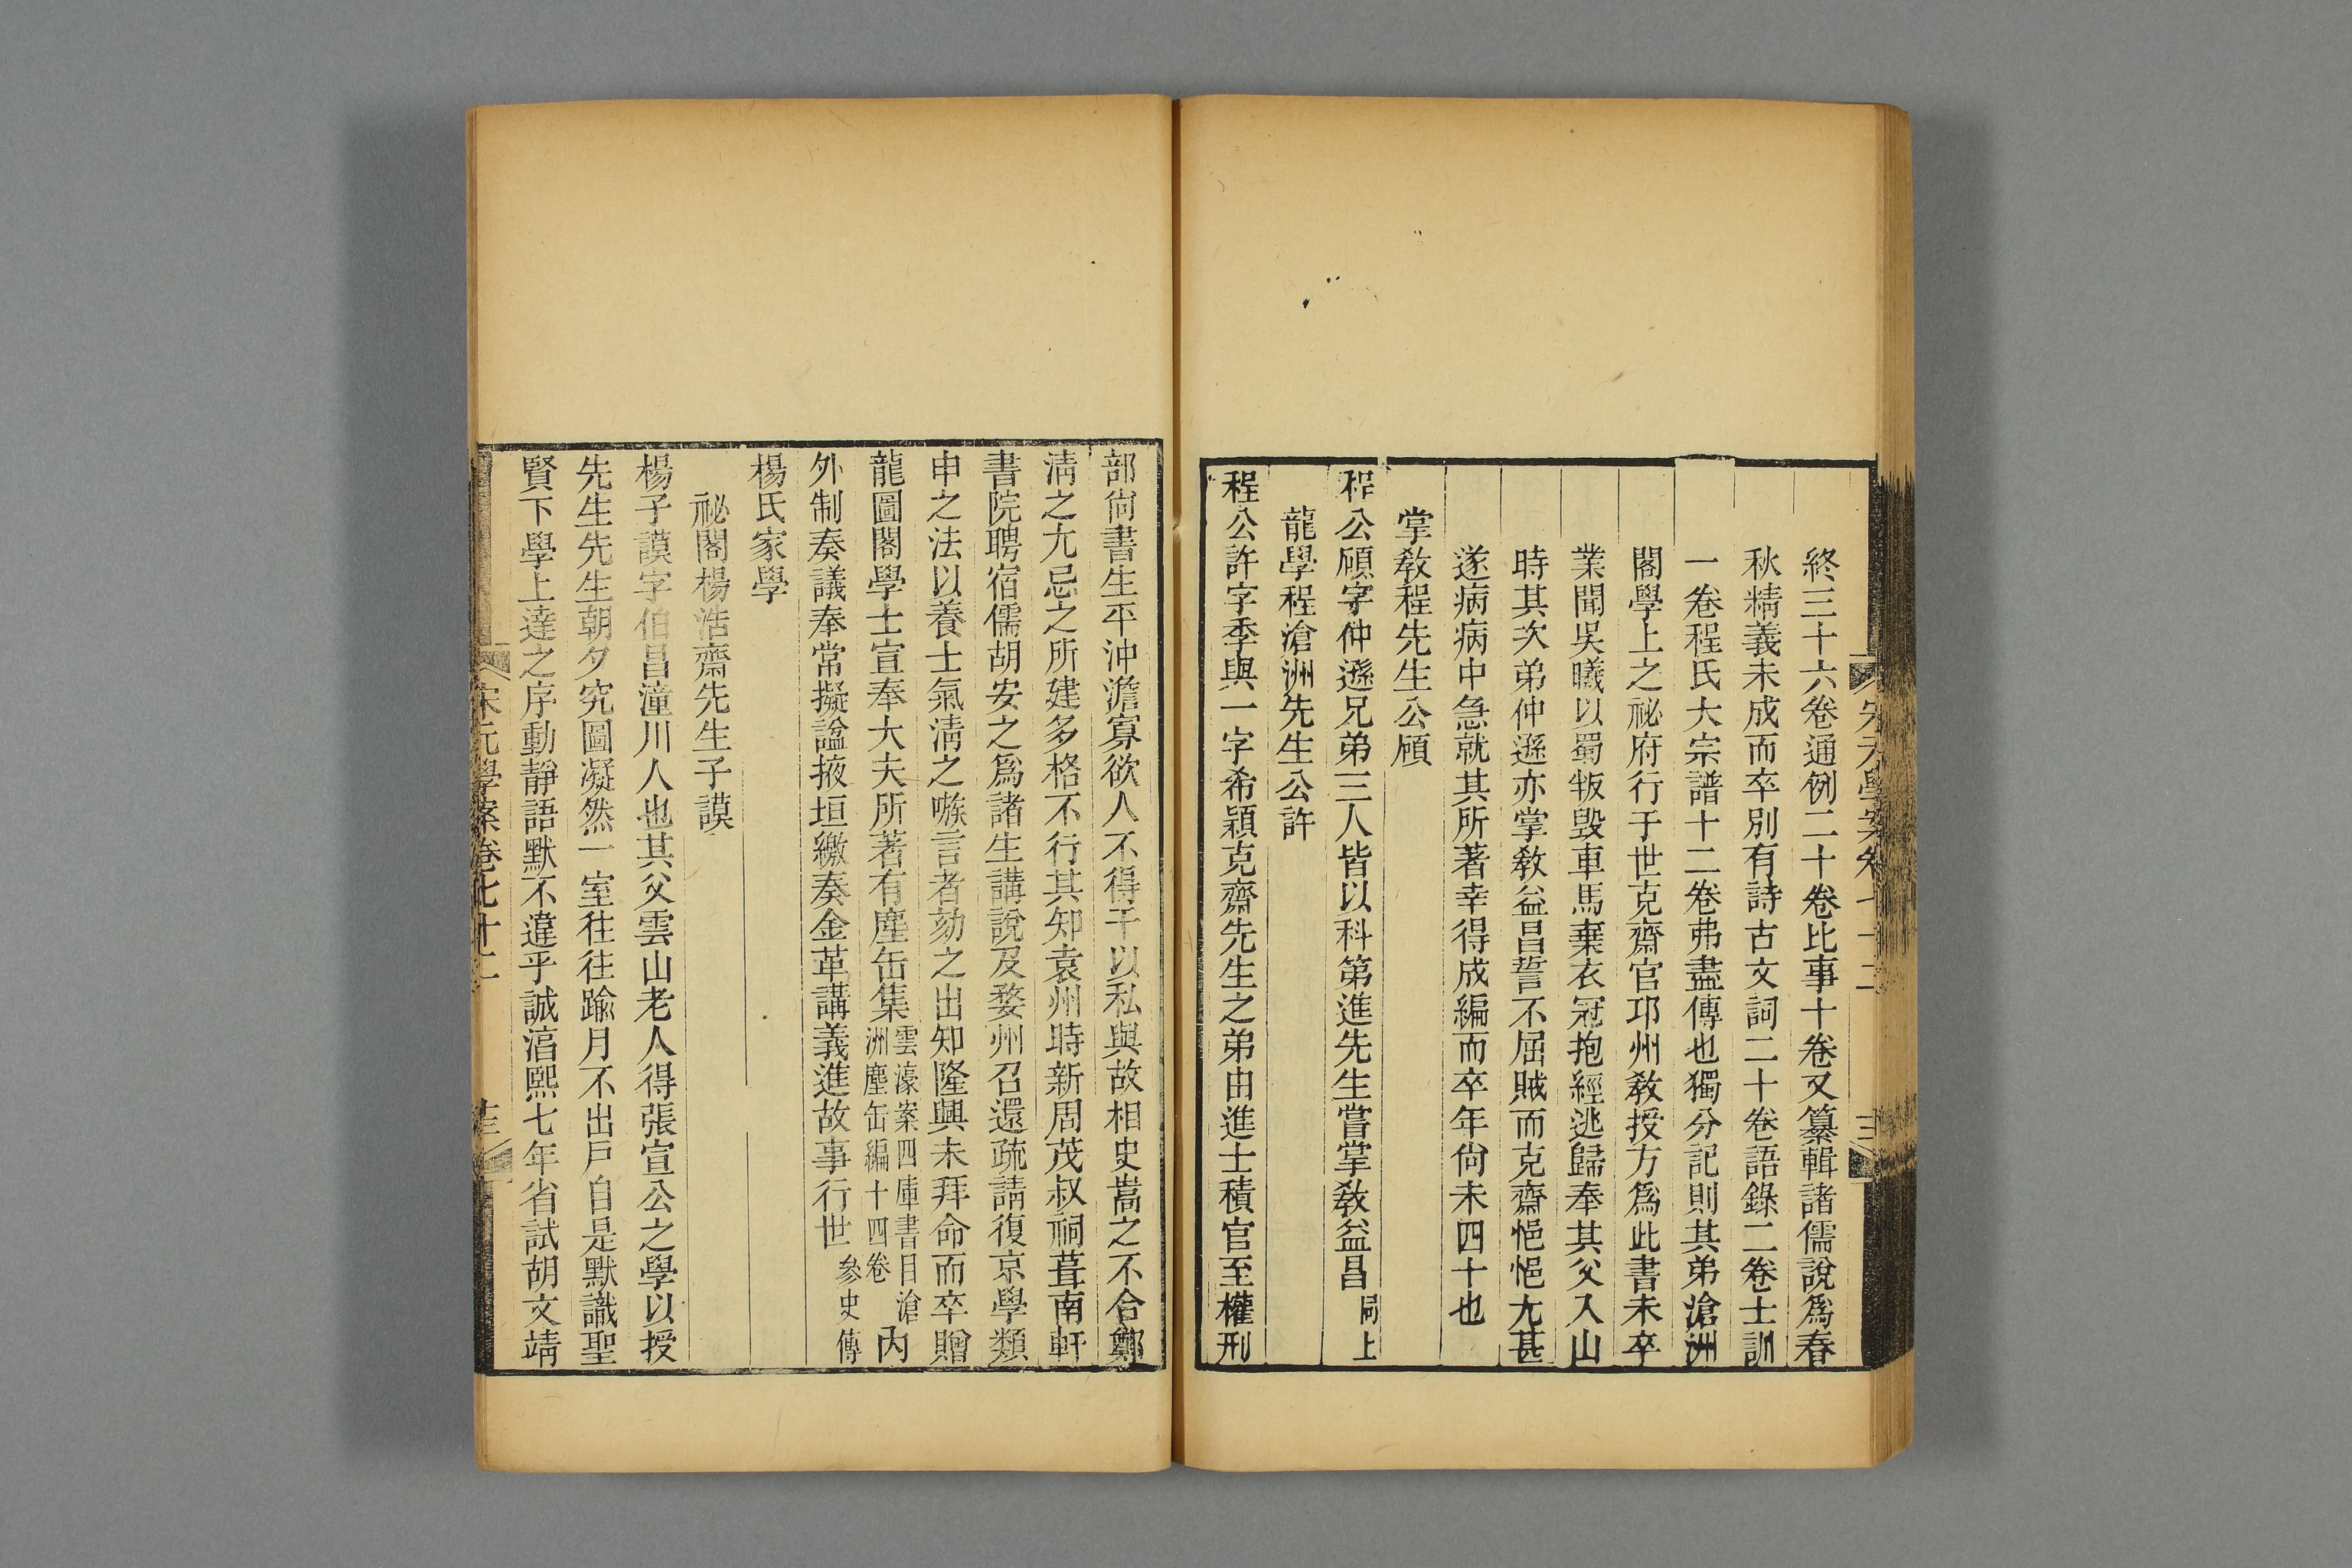 終三十六卷通例二十卷比事十卷又纂輯諸儒說爲春
秋精義未成而卒別有詩古文詞二十卷語錄二卷士訓
一卷程氏大宗譜十二卷弗盡傳也獨分記則其弟滄洲
閣學上之祕府行于世克齋官邛州敎授方爲此書未卒
業聞吳曦以蜀叛毁車馬棄衣冠抱經逃歸奉其父入山
時其次弟仲遜亦掌敎益昌誓不屈賊而克齋悒悒尤甚
遂病病中急就其所著幸得成編而卒年尙未四十也
掌敎程先生公頎
程公頎字仲遜兄弟三人皆以科第進先生嘗掌敎益昌同上
龍學程滄洲先生公許
程公許字季與一字希穎克齋先生之弟由進士積官至權刑
部尙書生平沖澹寡欲人不得干以私與故相史嵩之不合鄭
淸之尤忌之所建多格不行其知袁州時新周茂叔祠葺南軒
書院聘宿儒胡安之爲諸生講說及婺州召還疏請復京學類
申之法以養士氣淸之嗾言者劾之出知隆興未拜命而卒贈
龍圖閣學士宣奉大夫所著有塵缶集雲濠案四庫書目滄洲塵缶編十四卷內
外制奏議奉常擬諡掖垣繳奏金革講義進故事行世參史傳
楊氏家學
祕閣楊浩齋先生子謨
楊子謨字伯昌潼川人也其父雲山老人得張宣公之學以授
先生先生朝夕究圖凝然一室往往踰月不出戶自是默識聖
賢下學上達之序動靜語默不違乎誠淳熙七年省試胡文靖
宋元學案卷七十二